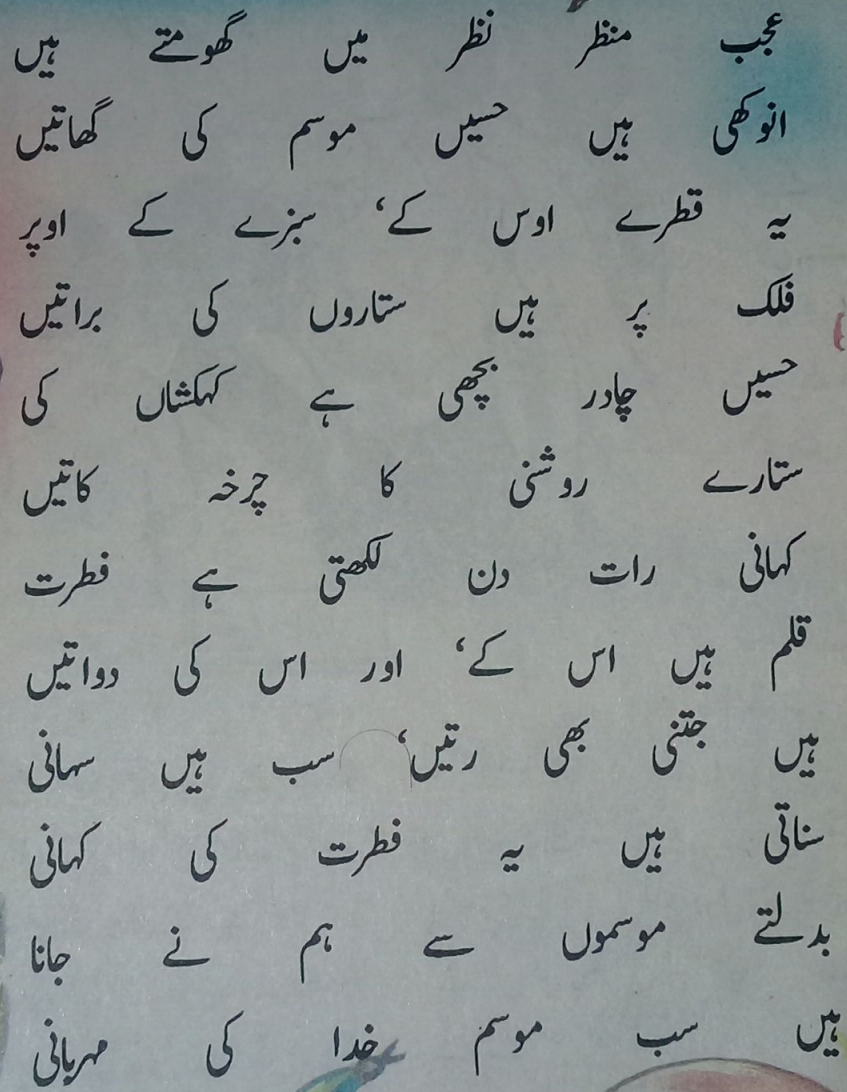 عجب منظر نظر میں گھومتے ہیں
انوکھی ہیں حسیں موسم کی گھاتیں
یہ قطرے اوس کے، سبزے کے اوپر
فلک پر ہیں ستاروں کی براتیں
حسیں چادر بچھی ہے کہکشاں کی
ستارے روشنی کا چرخہ کاتیں
کہانی رات دن لکھتی ہے فطرت
قلم ہیں اس کے، اور اس کی دواتیں
ہیں جتنی بھی رتیں، سب ہیں سہانی
سناتی ہیں یہ فطرت کی کہانی
بدلتے موسموں سے ہم نے جانا
ہیں سب موسم خدا کی مہربانی